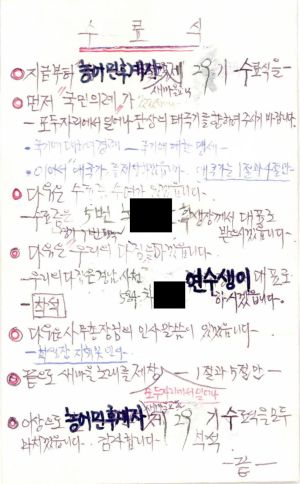 수료식
◎ 지금부터 농어민후계자 새마을교육 제 29기 수료식을 -
◎ 먼저 "국민의례"가
- 모두 자리에서 일어나 단상의 태극기를 향하여 주시기 바랍니다.
- 국기에 대하여 경례 - 국기에 대한 맹세 -
- 이어서 애국가를 제창하겠습니다. 애국가는 1절과 4절만 -
◎ 다음은 수료증 수여가 있겠습니다.
- 수료증은 5번 학생장께서 대표로
받으시겠습니다 -
◎ 다음은 "우리의 다짐"
- 우리의 다짐은 경남 사천
5학 연수생이 대표로
하시겠습니다.
- 착석
◎ 다음은 사무총장님의 인사말씀이 있겠습니다 -
◎ 끝으로 새마을 노래를 제창 1절과 5절만 -
모두 자리에서 일어나
◎ 이상으로 농어민후계자 제 29기 수료식을 모두
마치겠습니다. 감사합니다 - 착석
- 끝 -